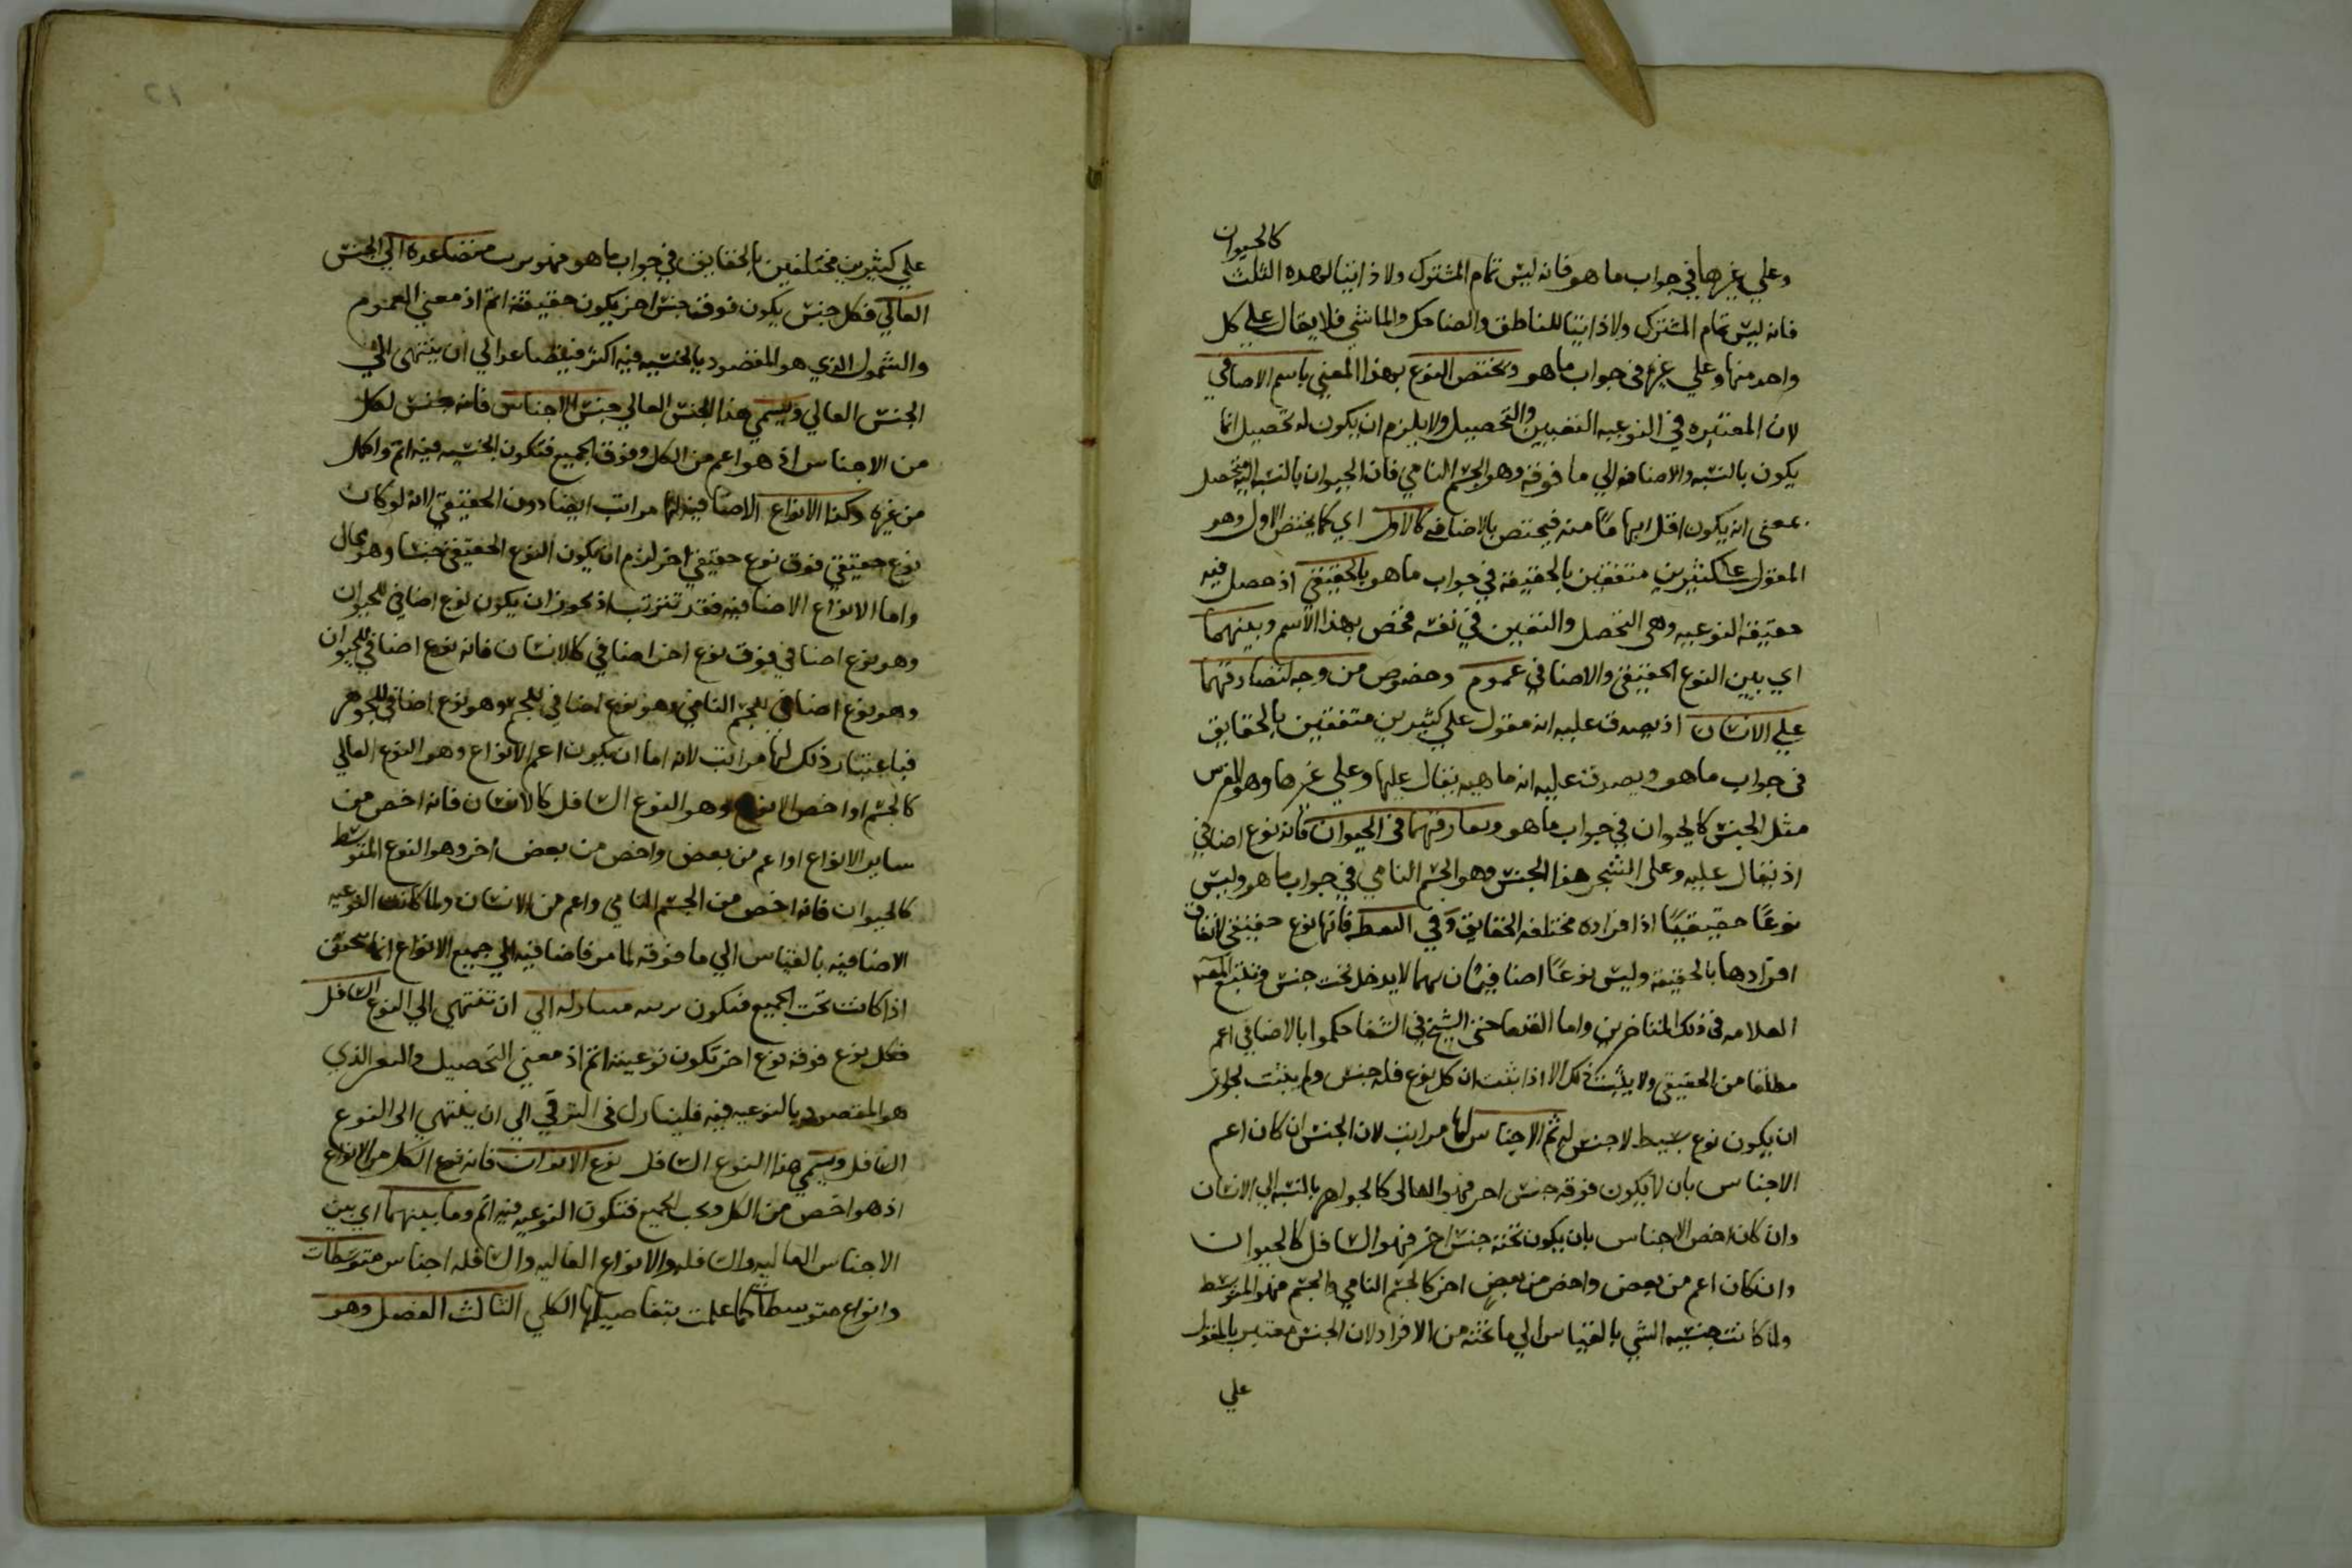 كالحيوان
وعلي غيرها في جواب ما هو فانه ليس تمام المشترك ولا ذاتيا لهذه الثلث
فانه ليس تمام المشترك ولا ذاتيا للناطق والضاحك والماشي فلا يقال علي كل
واحد منها وعلي غيرها في جواب ما هو ويختص النوع بهذا المعني باسم الاضافي
لان المعتبره في النوعيه التعيين والتحصيل ولا يلزم ان يكون له تحصيل انما
يكون بالنسبه والاضافه الي ما فوقه وهو الجسم النامي فان الحيوان بالنسبه اليه متحصل
بمعني انه يكون اقل ابهاما منه فيختص بالاضافه كالاول اي كما يختص الاول وهو
المقول علي كثيرين متفقين بالحقيقه في جواب ما هو بالحقيقي اذ حصل فيه
حقيقة النوعيه وهي التحصل والتعين في نفسه فخص بهذا الاسم وبينهما
اي بين النوع الحقيقي والاضافي عموم وخصوص من وجه لتصادقهما
علي الانسان اذ يصدق عليه انه مقول علي كثيرين متفقين بالحقايق
في جواب ما هو ويصدق عليه انه ماهيه يقال عليها وعلي غيرها وهو الفرس
مثل الجنس كالحيوان في جواب ما هو وتفارقهما في الحيوان فانه نوع اضافي
اذ يقال عليه وعلي الشجر هذا الجنس وهو الجسم النامي في جواب ما هو وليس
نوعًا حقيقيًا اذ افراده مختلفه الحقايق وفي النقطه فانها نوع حقيقي لاتفاق
افرادها بالحقيقه وليس نوعًا اضافيا لانهما لا يدخل تحت جنس وتتبع المص
العلامه في ذلك المتاخرين واما القدما حتي الشيخ في الشفا حكموا بالاضافي اعم
مطلقا من الحقيقي ولا يثبت ذلك الا اذا ثبت ان كل نوع فله جنس ولم يثبت لجواز
ان يكون نوع بسيط لا جنس له ثم الاجناس لها مراتب لان الجنس ان كان اعم
الاجناس بان لا يكون فوقه جنس اخر فهو العالي كالجواهر بالنسبه الي الانسان
وان كان اخص الاجناس بان يكون تحته جنس اخر فهو السافل كالحيوان
وان كان اعم من بعض واخص من بعض اخر كالجسم النامي والجسم فهو المتوسط
ولما كانت جنسيه الشي بالقياس الي ما تحته من الافراد لان الجنس معتبر بالمقول
علي
٢١
علي كثيرين مختلفين بالحقايق في جواب ما هو فهو يرتب متصاعده الي الجنس
العالي فكل جنس يكون فوقه جنس اخر يكون حقيقته اتم اذ معني العموم
والشمول الذي هو المقصود بالجنسيه فيه اكثر فيتصاعد الي ان ينتهي الي
الجنس العالي ويسمي هذا الجنس العالي جنس الاجناس فانه جنس لكل
من الاجناس اذ هو اعم من الكل وفوق الجميع فتكون الجنسيه فيه اتم واكمل
من غيره وكذا الانواع الاضافيه لها مراتب ايضا دون الحقيقي لانه لو كان
نوع حقيقي فوق نوع حقيقي اخر لزم ان يكون النوع الحقيقي جنسا وهو محال
واما الانواع الاضافيه فقد تترتب اذ يجوز ان يكون نوع اضافي للحيوان
وهو نوع اضافي فوق نوع اخر اضافي كالانسان فانه نوع اضافي للحيوان
وهو نوع اضافي للجسم النامي وهو نوع اضافي للجسم وهو نوع اضافي للجوهر
فباعتبار ذلك لها مراتب لانه اما ان يكون اعم الانواع وهو النوع العالي
كالجسم او اخص الانواع وهو النوع السافل كالانسان فانه اخص من
ساير الانواع او اعم من بعض واخص من بعض اخر وهو النوع المتوسط
كالحيوان فانه اخص من الجسم النامي واعم من الانسان ولما كانت النوعيه
الاضافيه بالقياس الي ما فوقه لما مر فاضافيه الي جميع الانواع انما يتحقق
اذا كانت تحت الجميع فتكون مرتبه متنازله الي ان تنتهي الي النوع السافل
فكل نوع فوقه نوع اخر تكون نوعيته اتم اذ معني التحصيل والتعين الذي
هو المقصود بالنوعيه فيه فليتنازل في الترقي الي ان ينتهي الي النوع
السافل ويسمي هذا النوع السافل نوع الانواع فانه نوع الكل من الانواع
اذ هو اخص من الكل وتحت الجميع فتكون النوعيه فيه اتم وما بينهما اي بين
الاجناس العاليه والسافله والانواع العاليه والسافله اجناس متوسطات
وانواع متوسطات كما علمت بتفاصيلها الكلي الثالث الفصل وهو